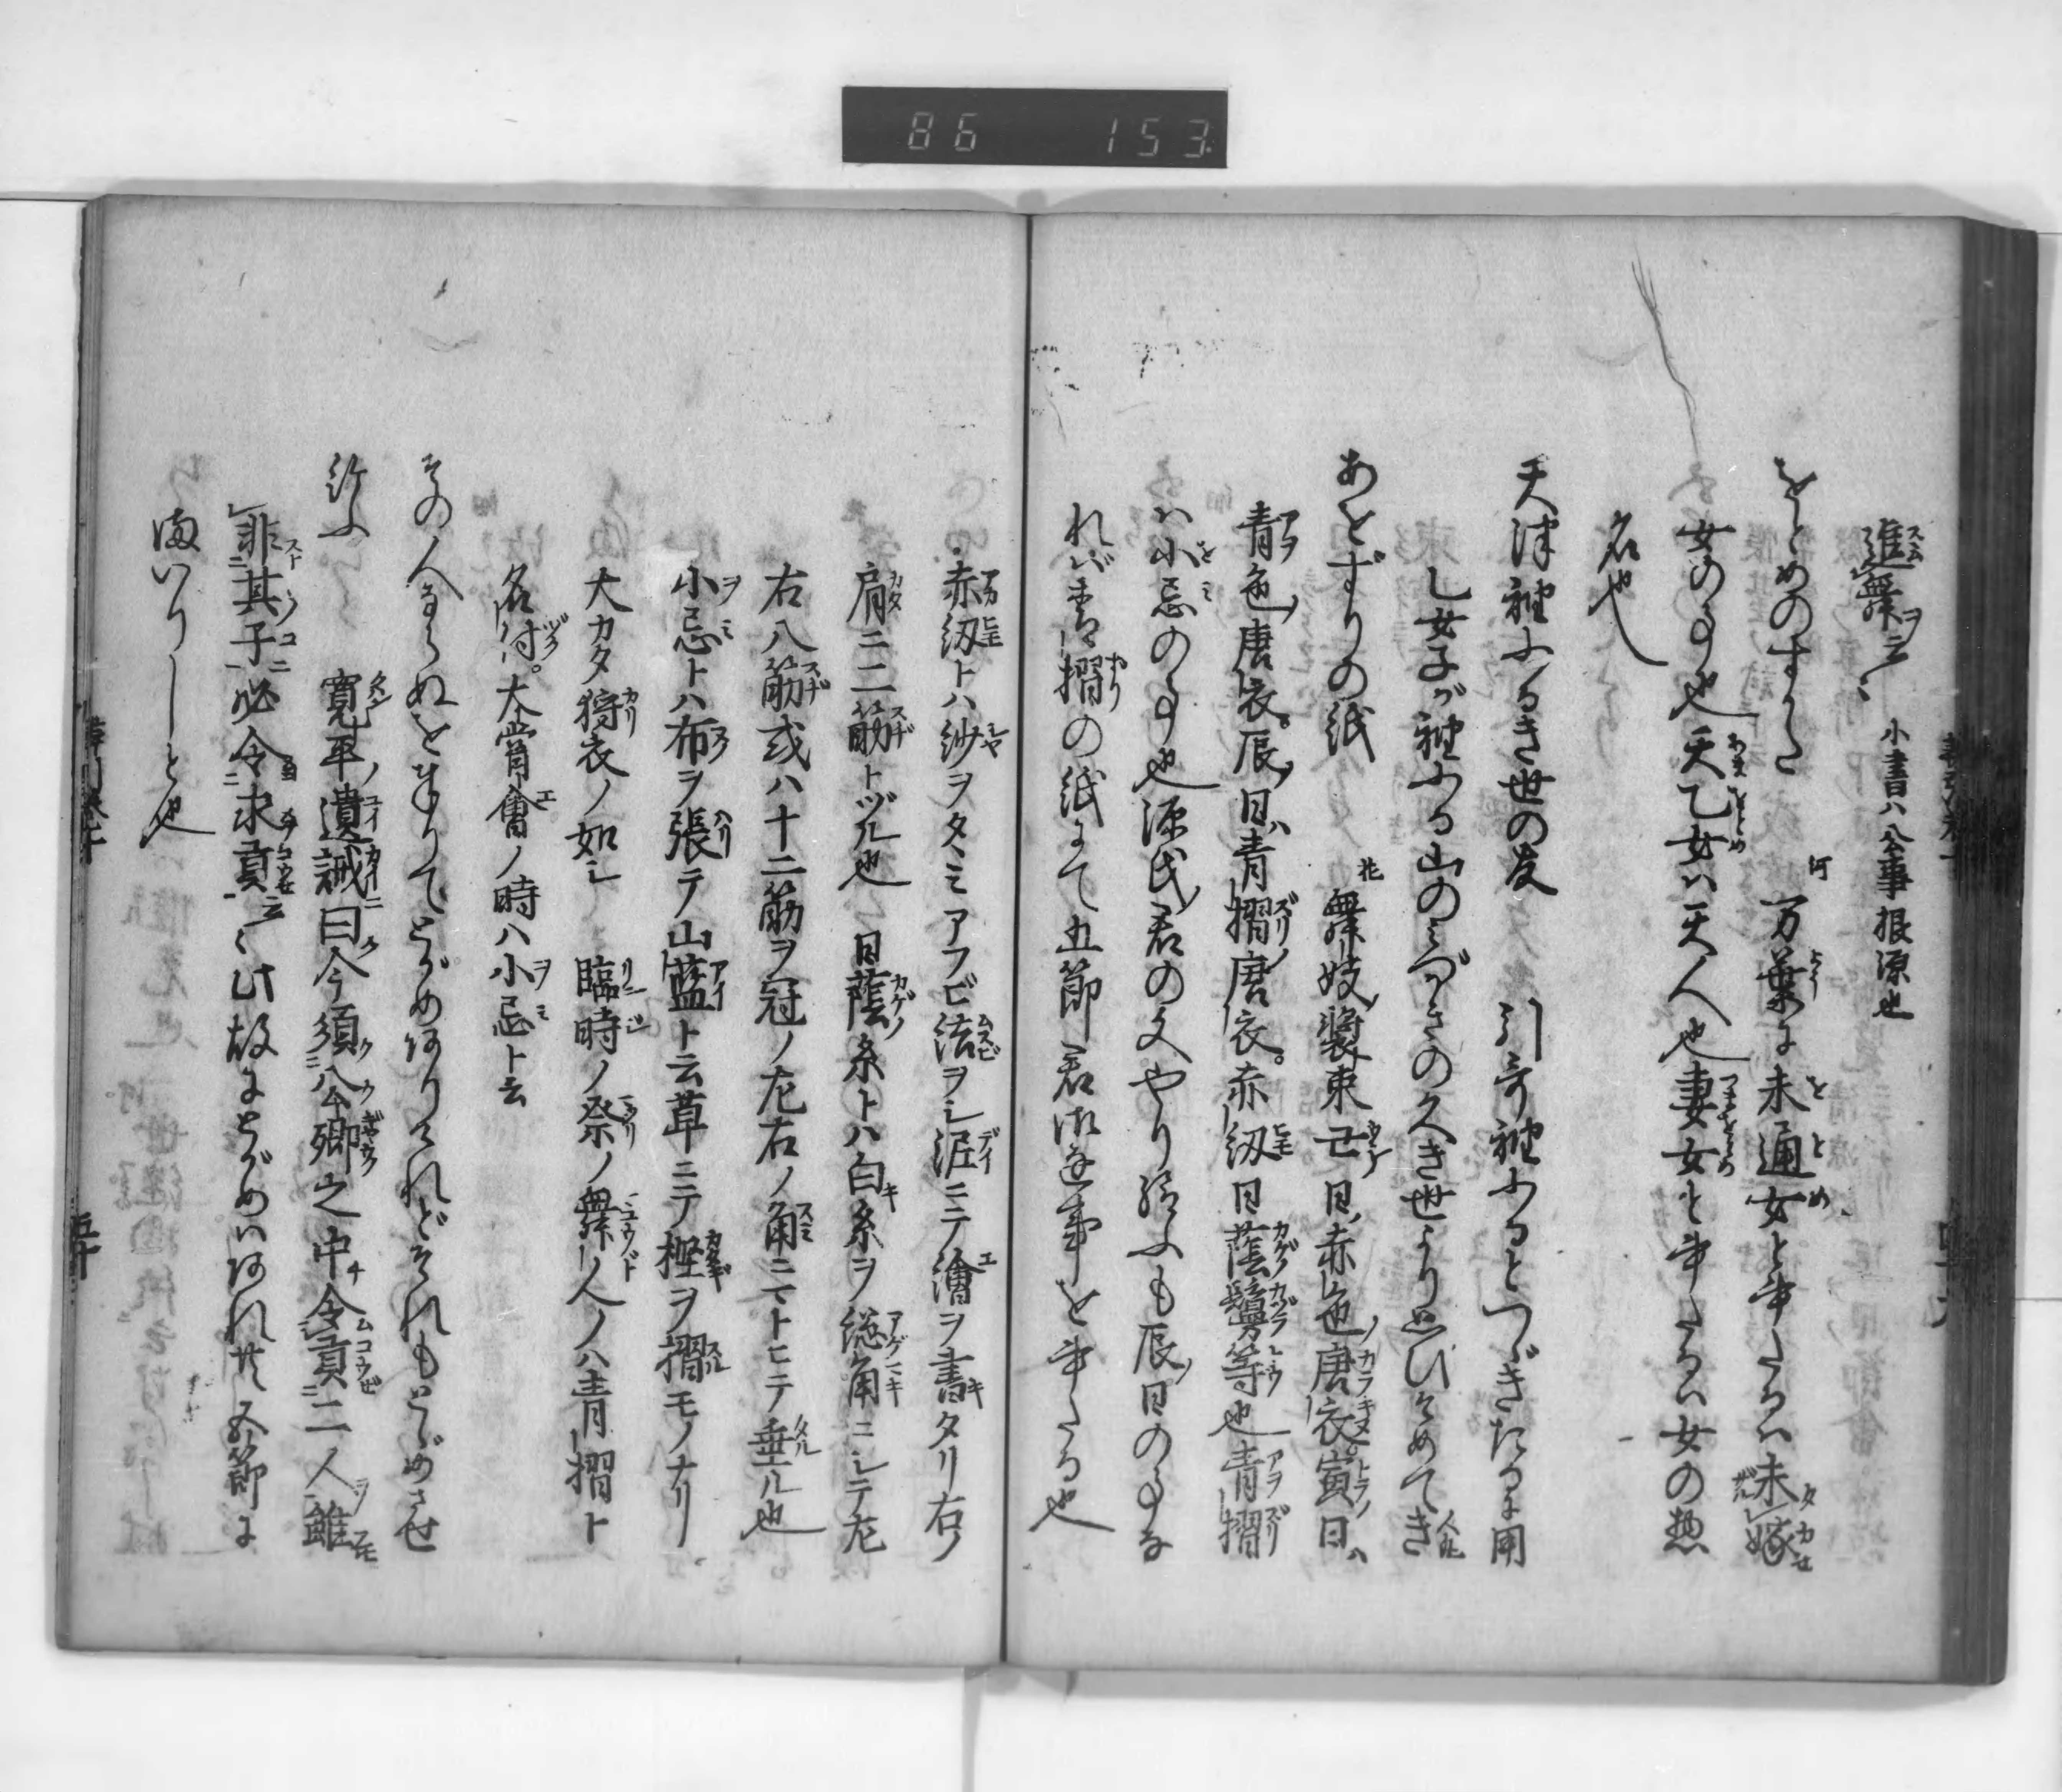 86 153
進舞ヲ云々 小書ハ公事根源也
をとめのすがた 河 万葉に未通女と書たるハ未嫁
女の事也天乙女ハ天人也妻女と書たるハ女の惣
名也
天津神ふるき世の友 引哥神ふるとつゞきたるに用
乙女子が神ふる山のみづがきの久き世より思ひそめてき 人丸
あをずりの紙 花 舞妓装束丑日ノ赤色唐衣寅日ハ
青色ノ唐衣。辰ノ日ハ青摺ノ唐衣。赤紐日蔭鬘等也青摺
ハ小忌の事也源氏ノ君の文やり給ふも辰ノ日の事な
れバ青摺の紙にて五節君に逢事を書たる也
赤紐トハ紗ヲタヽミアワビ結ヲシ泥ニテ繪ヲ書タリ右ノ
肩ニ二筋トヅル也 日蔭ノ糸トハ白キ糸ヲ総角ニシテ左
右八筋或ハ十二筋ヲ冠ノ左右ノ角ニマトヒテ垂ル也
小忌トハ布ヲ張テ山藍ト云草ニテ樫ヲ摺モノナリ
大カタ狩衣ノ如シ 臨時ノ祭ノ舞人ノハ青摺ト
名付。大嘗會ノ時ハ小忌ト云
その人ならぬをまゐりてとがめありけれどそれもとゞめさせ
給ふ 寛平ノ遺誡曰今須公卿之中令貢二人雖
非其子必令求貢云々此故にとがめハあれ共五節に
まいりしと也
五十